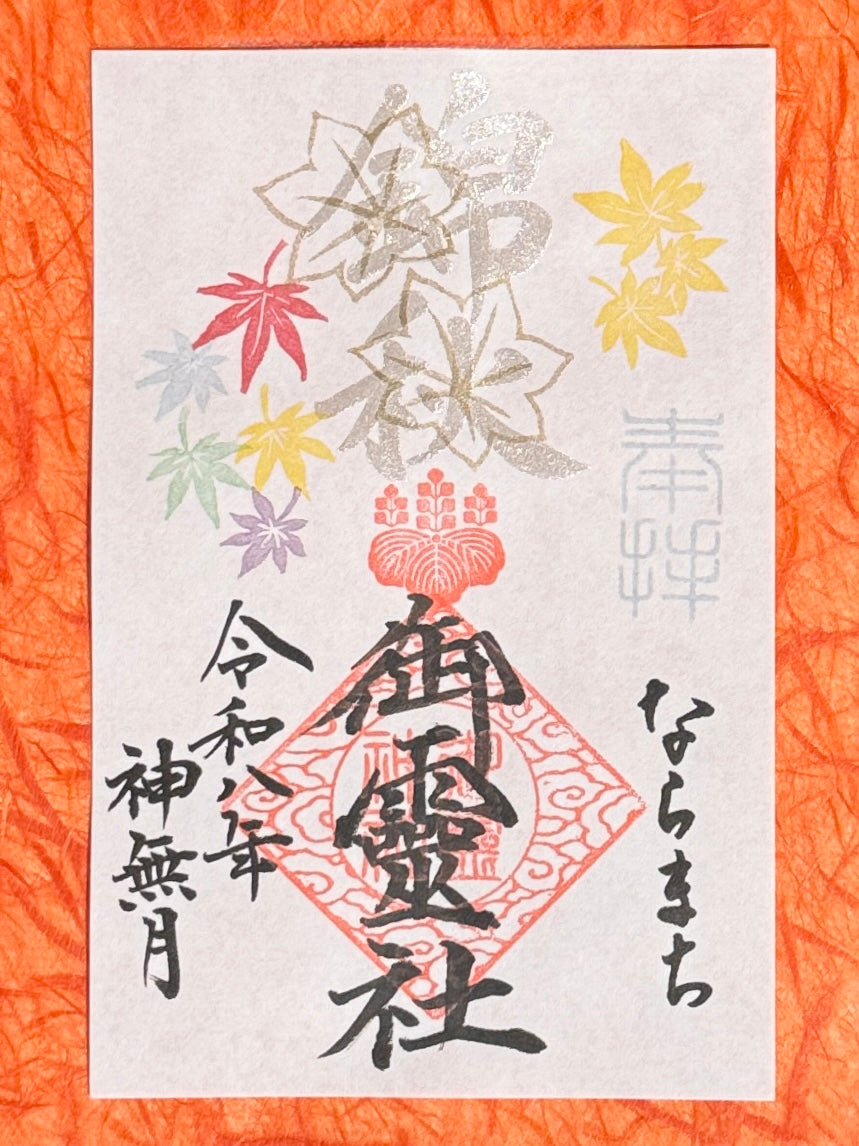 錦秋
奉拝
ならまち
御靈社
令和八年
神無月